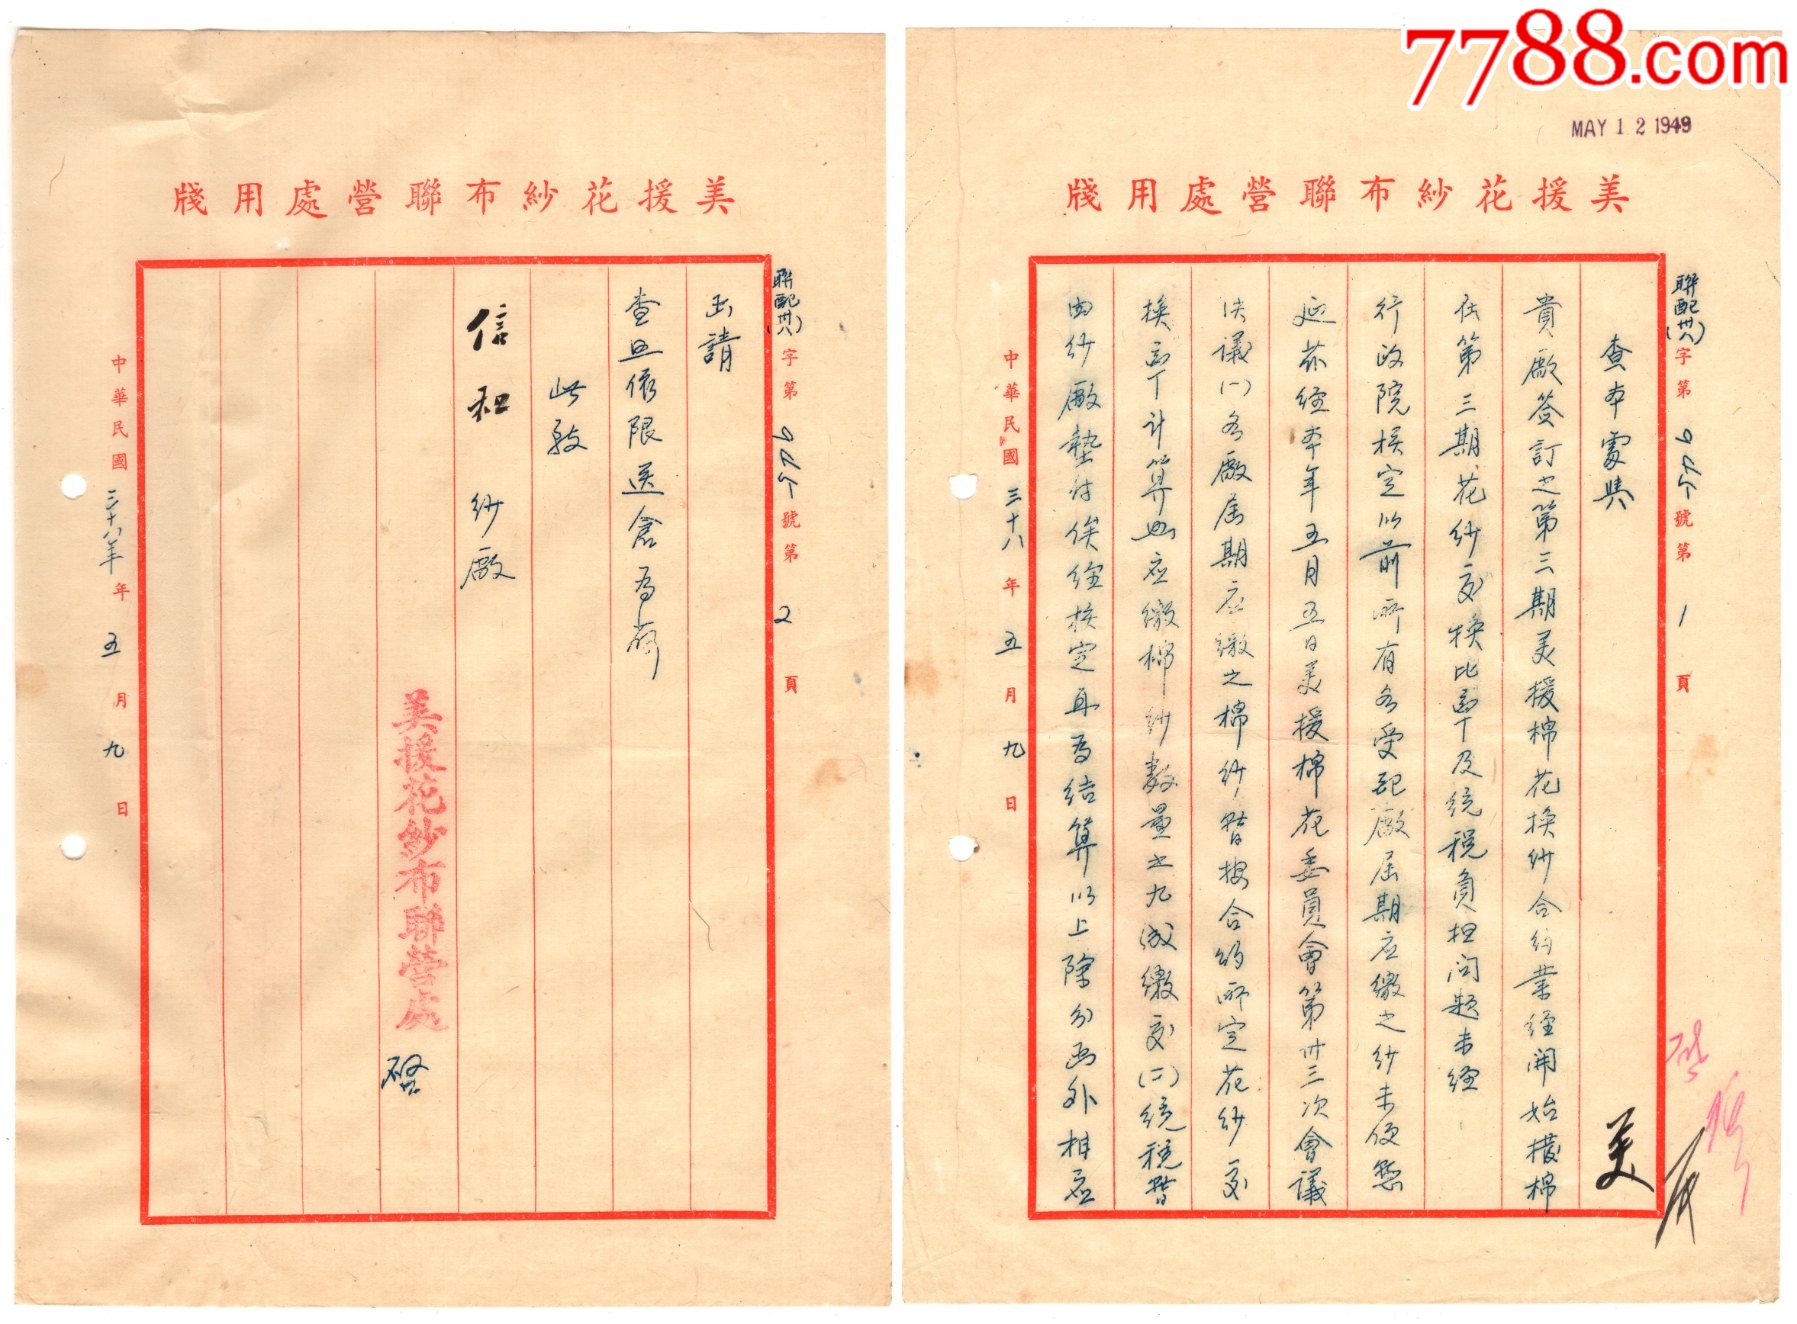 7788.com
MAY 12 1949
美援花紗布聯營處用牋
聯配(卅八)字第 號第1頁
查本處與
貴廠簽訂之第三期美援棉花換紗合約業經開始撥棉
在第三期花紗交換比率及統稅負担问題未經
行政院核定以前所有各受配廠屆期应繳之紗未便懸
延茲經本年五月五日美援棉花委員會第卅三次會議
決議(一)各廠屆期应繳之棉紗暫按合約所定花紗交
換率計算应繳棉紗數量之九成繳交(二)統稅暫
由紗廠墊付俟經核定再為結算以上除分函外相应
中華民國三十八年五月九日
美援花紗布聯營處用牋
聯配(卅八)字第 號第2頁
函請
查照依限送倉為荷
此致
信和紗廠
美援花紗布聯營處
啓
中華民國三十八年年五月九日